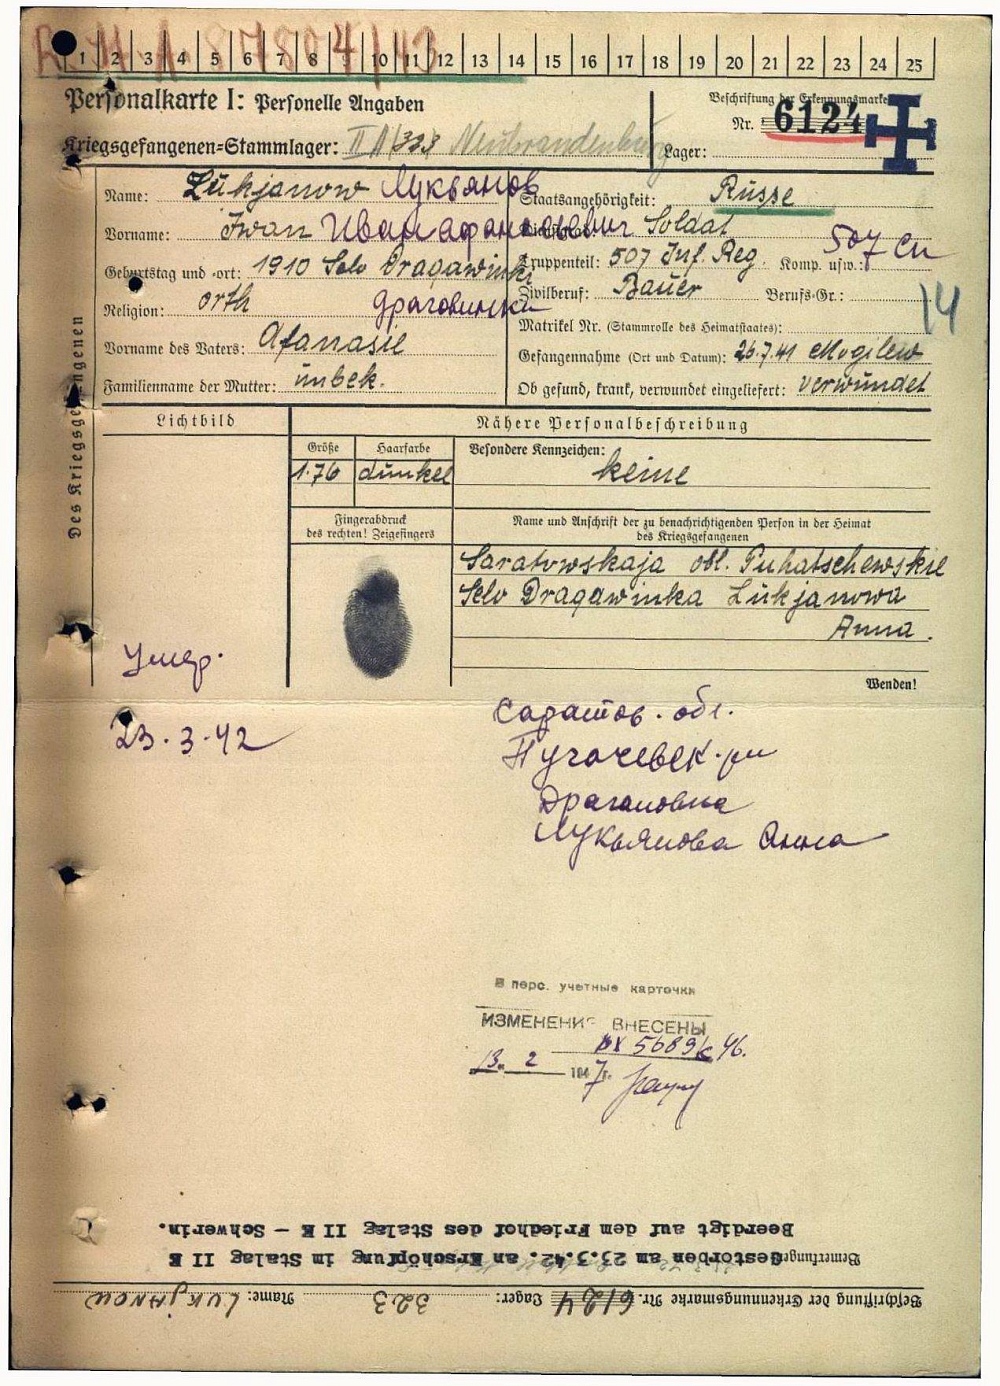 R.M.A 87804/43
1 2 3 4 5 6 7 8 9 10 11 12 13 14 15 16 17 18 19 20 21 22 23 24 25
Personalkarte I: Personelle Angaben
Beschriftung der Erkennungsmarke
Nr. 6124
Kriegsgefangenen-Stammlager: II A/323 Neubrandenburg
Lager:
Des Kriegsgefangenen
Name: Lukjanow Лукьянов
Staatsangehörigkeit: Russe
Vorname: Iwan Иван Афанасьевич
Dienstgrad: Soldat
Geburtstag und -ort: 1910 Selo Dragawinki
Truppenteil: 507 Inf. Reg. Komp. usw.: 507 сп
Religion: orth драговински
Zivilberuf: Bauer Berufs-Gr.:
14
Matrikel Nr. (Stammrolle des Heimatstaates):
Vorname des Vaters: Afanasie
Gefangennahme (Ort und Datum): 26.7.41 Mogilew
Familienname der Mutter: unbek.
Ob gesund, krank, verwundet eingeliefert: verwundet
Lichtbild
Nähere Personalbeschreibung
Größe
Haarfarbe
Besondere Kennzeichen:
1.76
dunkel
keine
Fingerabdruck
des rechten! Zeigefingers
Name und Anschrift der zu benachrichtigenden Person in der Heimat
des Kriegsgefangenen
Saratowskaja obl. Puhatschewskie
Selo Dragawinka Lukjanowa
Anna.
Wenden!
Умер.
23.3.42
Саратов. обл.
Пугачевск. р-н
Драгановка
Лукьянова Анна
В перс. учетные карточки
ИЗМЕНЕНИЯ ВНЕСЕНЫ
вх 5689с 46.
13. 2 1947г.
Beerdigt auf dem Friedhof des Stalag II E - Schwerin.
Bemerkungen: Gestorben am 23.3.42. an Erschöpfung im Stalag II E
Beschriftung der Erkennungsmarke Nr. 6124 Lager: 323 Name: LUKJANOW